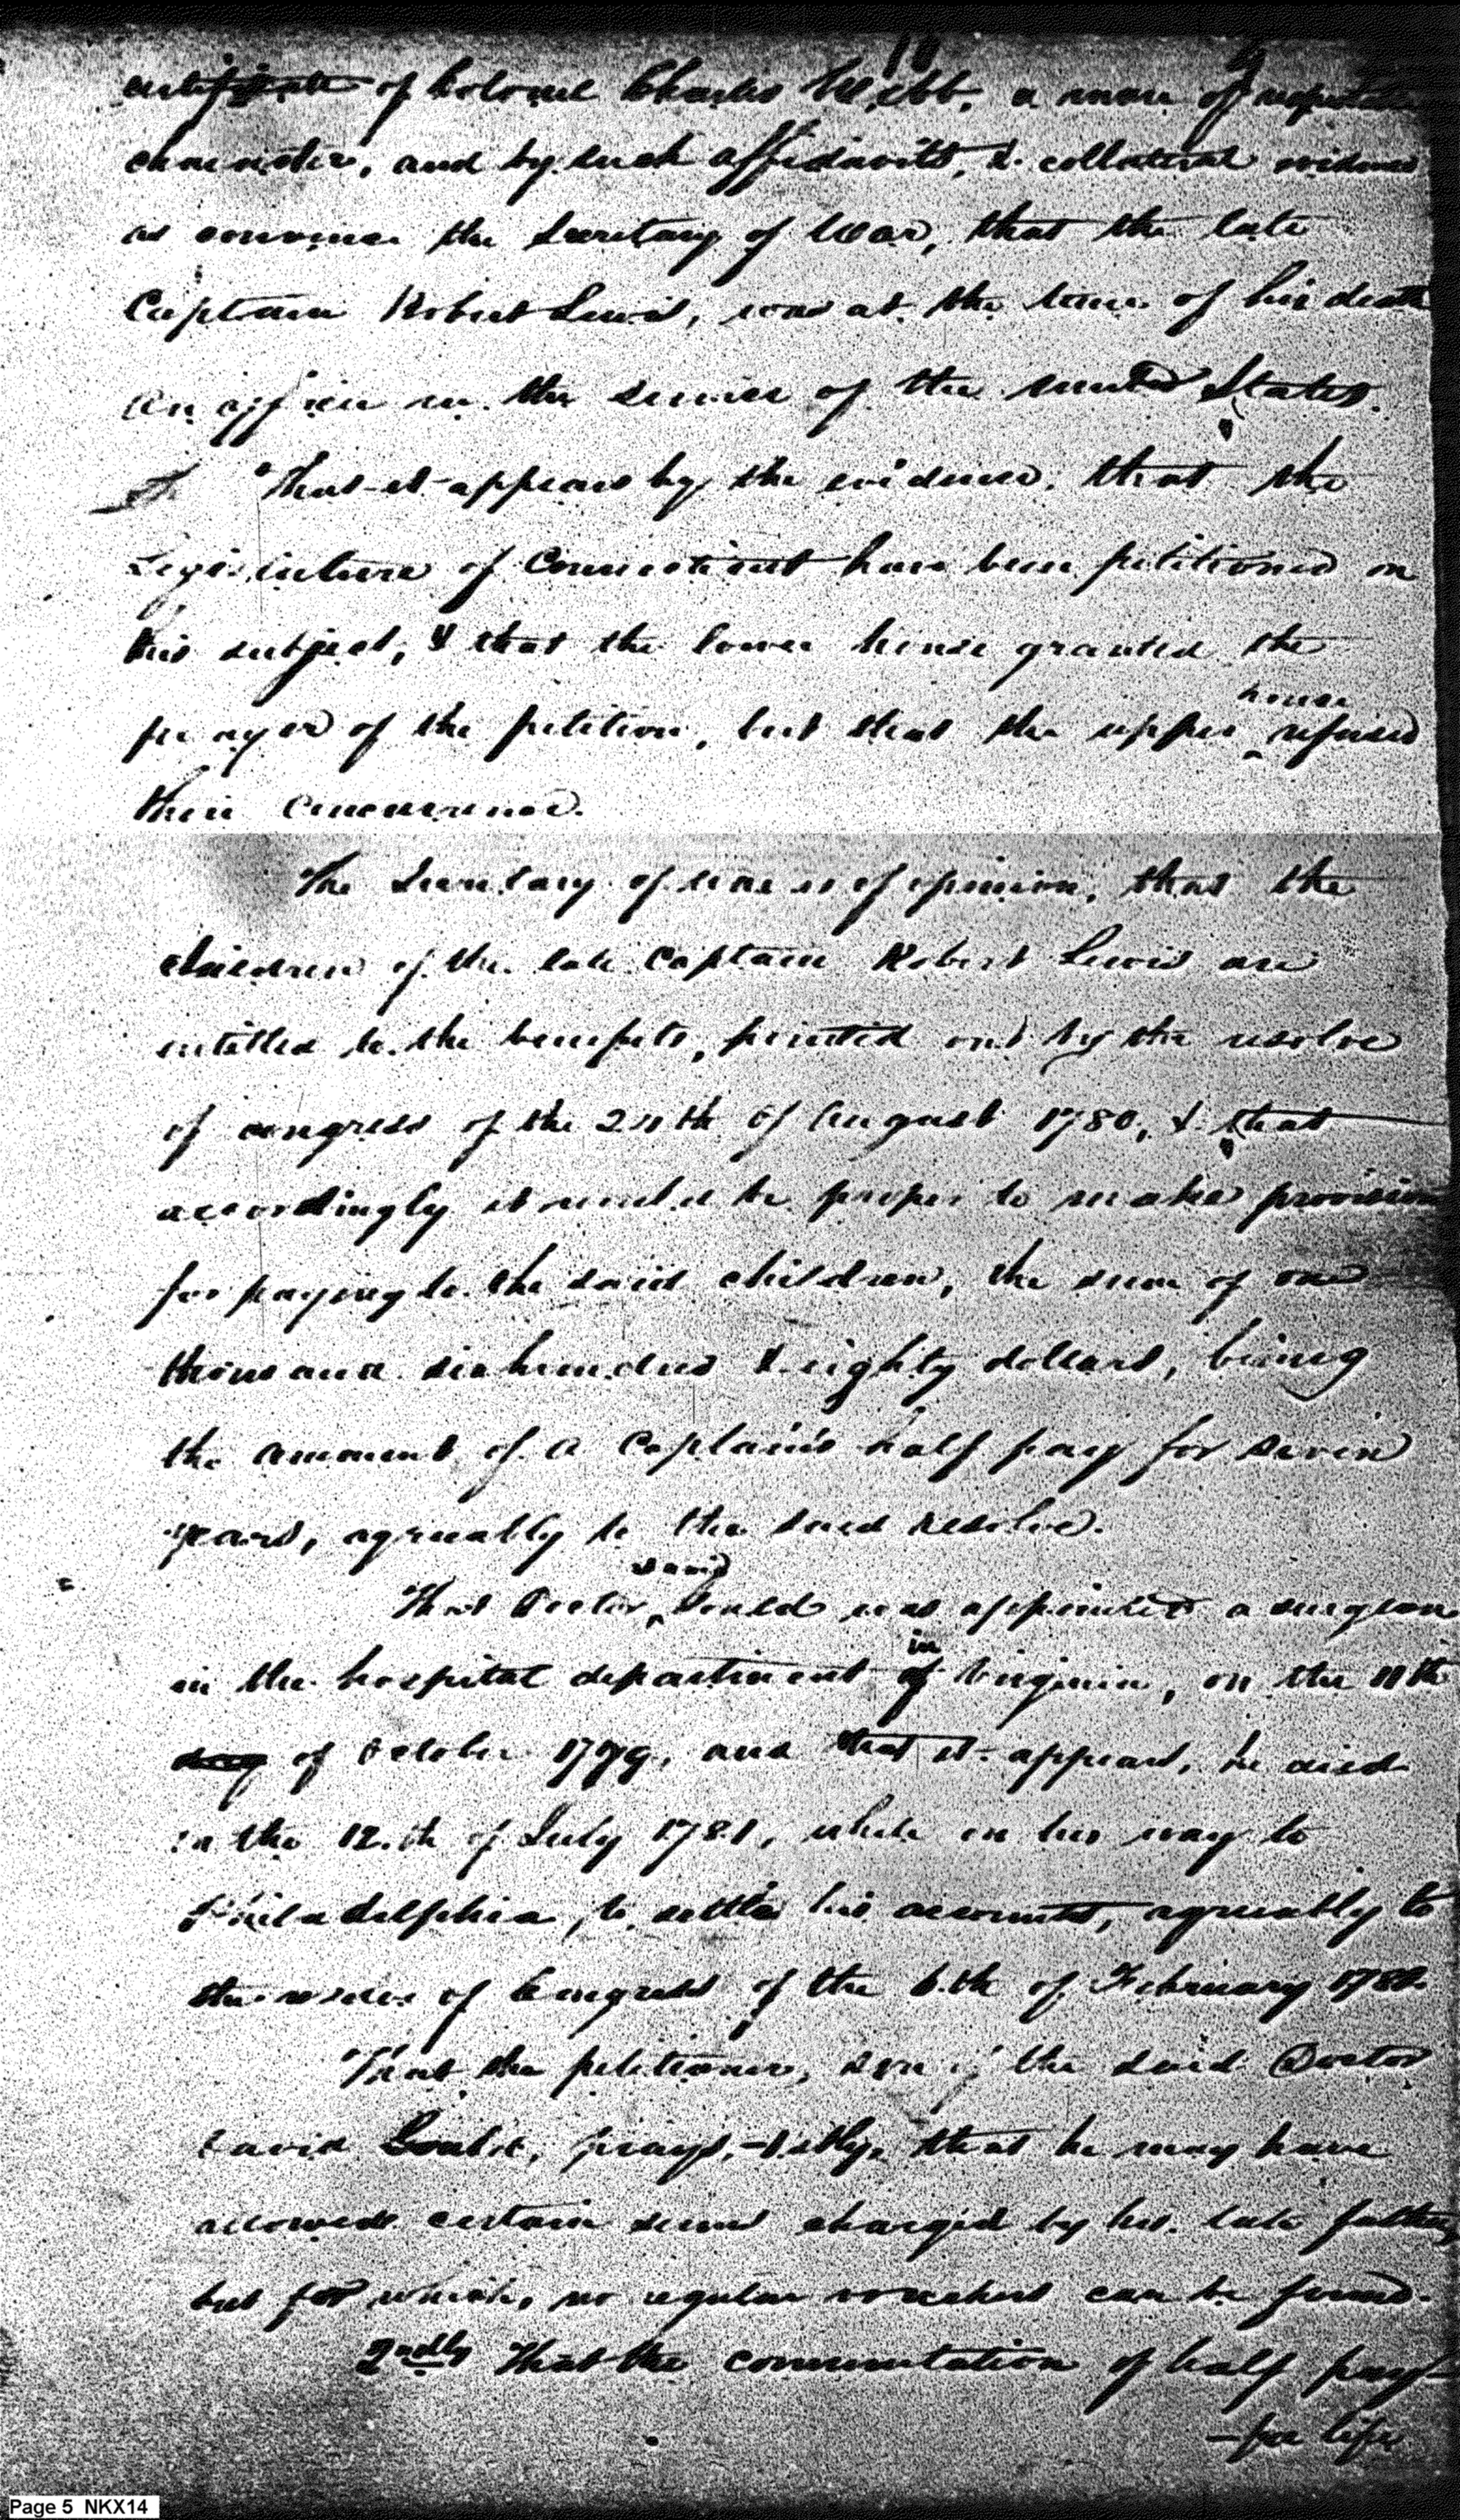 certificate of Colonel Charles Webb, a man of
character, and by such affidavits, & collateral evidence
as convince the Secretary of War, that the late
Captain Robert Lewis, was at the time of his death
an officer in the service of the united States.
That it appears by the evidence, that the
Legislature of Connecticut have been petitioned on
this subject, & that the lower house granted the
prayer of the petition, but that the upper house refused
their concurrence.
The Secretary of War is of opinion, that the
children of the late Captain Robert Lewis are
entitled to the benefits, pointed out by the resolve
of congress of the 24th of August 1780, & that
accordingly it would be proper to make provision
for paying to the said children, the sum of one
thousand six hundred & eighty dollars, being
the amount of a Captain's half pay for seven
years, agreeably to the said resolve.
That Doctor David Gould was appointed a surgeon
in the hospital department of in Virginia, on the 11th
day of October 1779, and that it appears, he died
on the 12.th of July 1781, while on his way to
Philadelphia, to settle his accounts, agreeably to
the resolve of Congress of the 6.th of February 178
That the petitioner, son of the said Doctor
David Gould, prays, 1.stly, that he may have
allowed certain sums charged by his late father
but for which, no regular vouchers can be found.
2ndly That the commutation of half pay
- for life
Page 5 NKX14